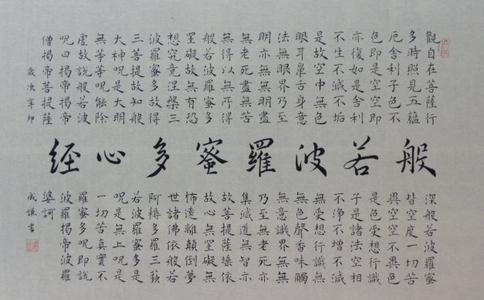 般若波羅蜜多心經
觀自在菩薩行深般若波羅蜜
多時照見五蘊皆空度一切苦
厄舍利子色不異空空不異色
色即是空空即是色受想行識
亦復如是舍利子是諸法空相
不生不滅不垢不淨不增不減
是故空中無色無受想行識無
眼耳鼻舌身意無色聲香味觸
法無眼界乃至無意識界無無
明亦無無明盡乃至無老死亦
無老死盡無苦集滅道無智亦
無得以無所得故菩提薩埵依
般若波羅蜜多故心無罣礙無
罣礙故無有恐怖遠離顛倒夢
想究竟涅槃三世諸佛依般若
波羅蜜多故得阿耨多羅三藐
三菩提故知般若波羅蜜多是
大神呪是大明呪是無上呪是
無等等呪能除一切苦真實不
虛故說般若波羅蜜多呪即說
呪曰揭帝揭帝波羅揭帝波羅
僧揭帝菩提薩婆訶
歲次
書